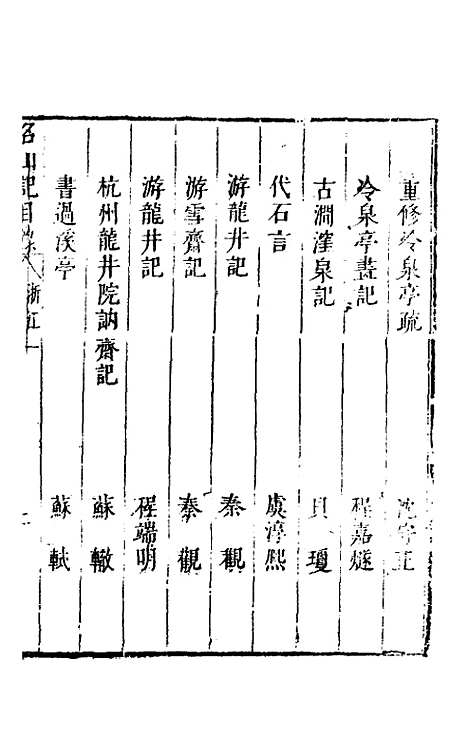 重修冷泉亭疏 沈守正
冷泉亭畵記 程嘉燧
古澗潌泉記 貝瓊
代石言 虞淳熙
游龍井記 秦觀
游雪齋記 秦觀
游龍井記 程端明
杭州龍井院訥齋記 蘇轍
書過溪亭 蘇軾
名山記目錄 浙江一